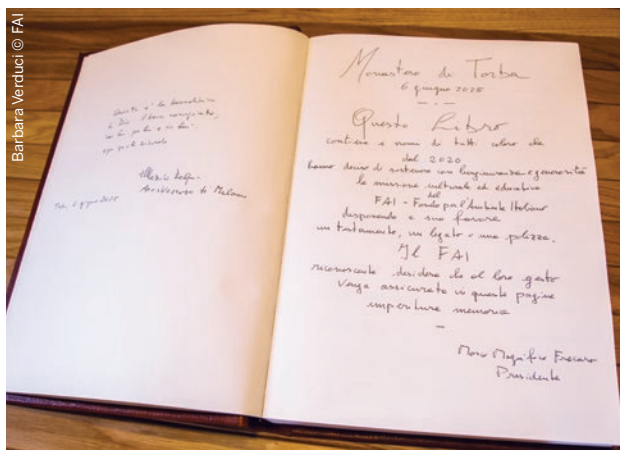 Barbara Verduci © FAI
Questo è la
di Dio
Arcivescovo di Milano
6 giugno 2025
Monastero di Torba
6 giugno 2025
Questo Libro
contiene i nomi di tutti coloro che
dal 2020
hanno deciso di sostenere con lungimiranza e generosità
la missione culturale ed educativa
del
FAI - Fondo per l'Ambiente Italiano
disponendo a suo favore
un testamento, un legato o una polizza.
Il FAI
riconoscente desidera che al loro gesto
venga assicurata in queste pagine
imperitura memoria
Marco Magnifico Fracaro
Presidente